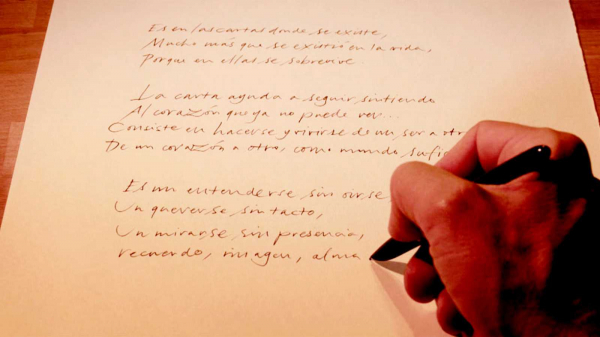 Es en las cartas donde se existe,
Mucho más que se existió en la vida,
Porque en ellas se sobrevive.
La carta ayuda a seguir sintiendo
Al corazón que ya no puede ver...
Consiste en hacerse y vivirse de un ser a otr
De un corazón a otro, como mundo sufi
Es un entenderse sin oirse
Un quererse sin tacto,
Un mirarse sin presencia,
recuerdo, imagen, alma